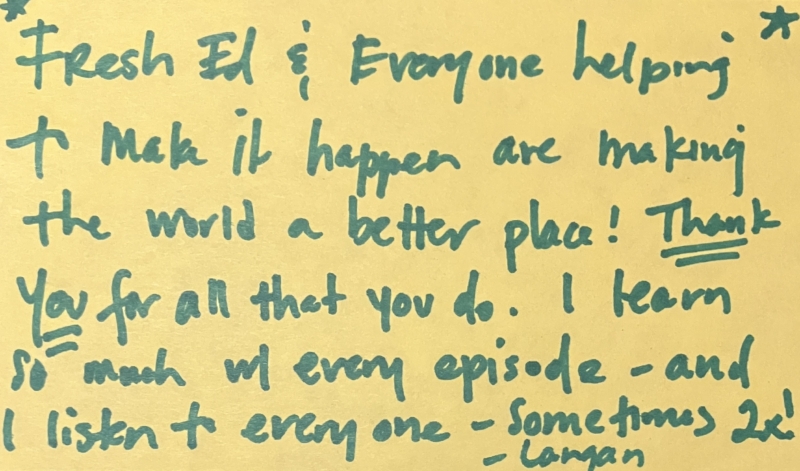 * Fresh Ed & Everyone helping *
t Make it happen are making
the world a better place! Thank
You for all that you do. I learn
so much w/ every episode - and
I listen t every one - Sometimes 2x!
- Langan